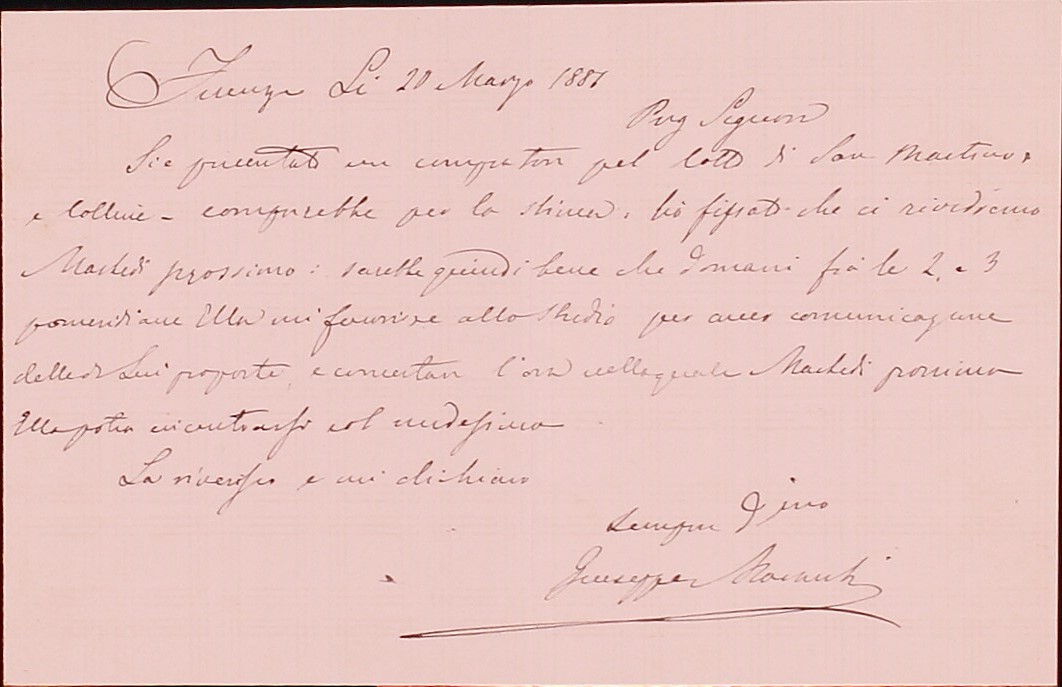 Firenze Li 20 Marzo 1881
Preg Signore
Si è presentato un compratore pel lotto di San Martino
e Colline - comprerebbe per la stima, ho fissato che ci rivedremo
Martedì prossimo: sarebbe quindi bene che domani fra le 2, e 3
pomeridiane Ella mi favorisse allo Studio per aver comunicazione
delle di Lui proposte, e concertare l'ora nella quale Martedì prossimo
Ella potrà incontrarsi col medesimo
La riverisco e mi dichiaro
sempre
Giuseppe